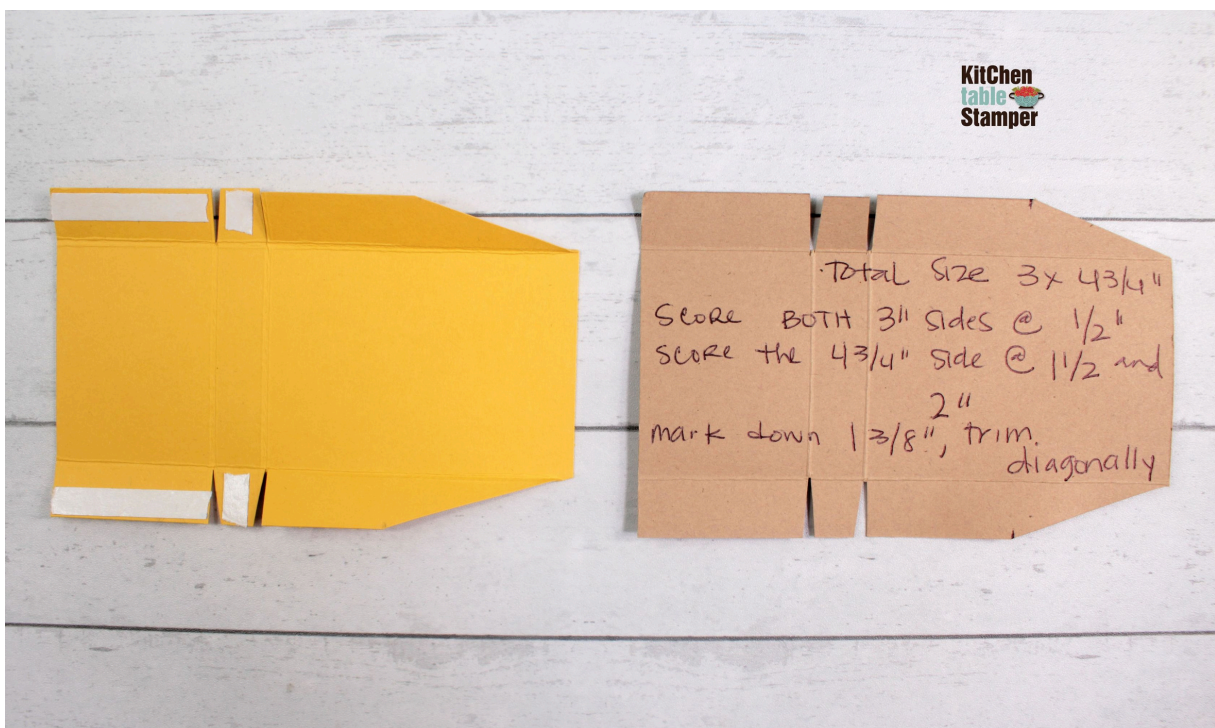 KitChen
table
Stamper
Total Size 3x 4 3/4"
Score BOTH 3" sides @ 1/2"
score the 4 3/4" side @ 1 1/2 and
2"
mark down 1 3/8", trim.
diagonally